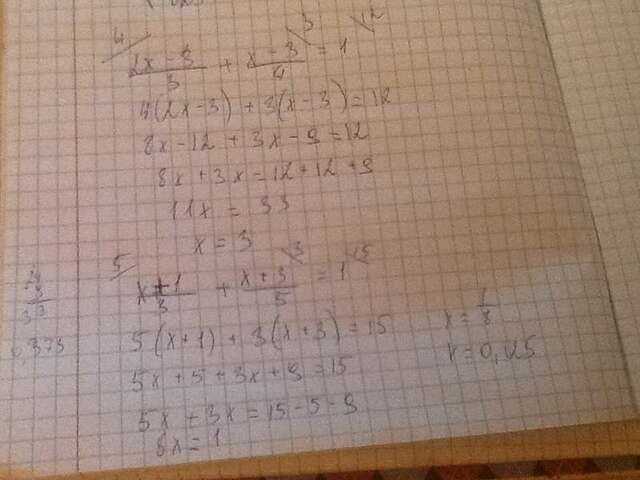 4 3 12
(2x-3)/3 + (x-3)/4 = 1
4(2x-3) + 3(x-3) = 12
8x-12 + 3x-9 = 12
8x + 3x = 12 + 12 + 9
11x = 33
x = 3
5 3 15
(x+1)/3 + (x+3)/5 = 1
5(x+1) + 3(x+3) = 15
5x + 5 + 3x + 9 = 15
5x + 3x = 15-5-9
8x = 1
x = 1/8
x = 0,125